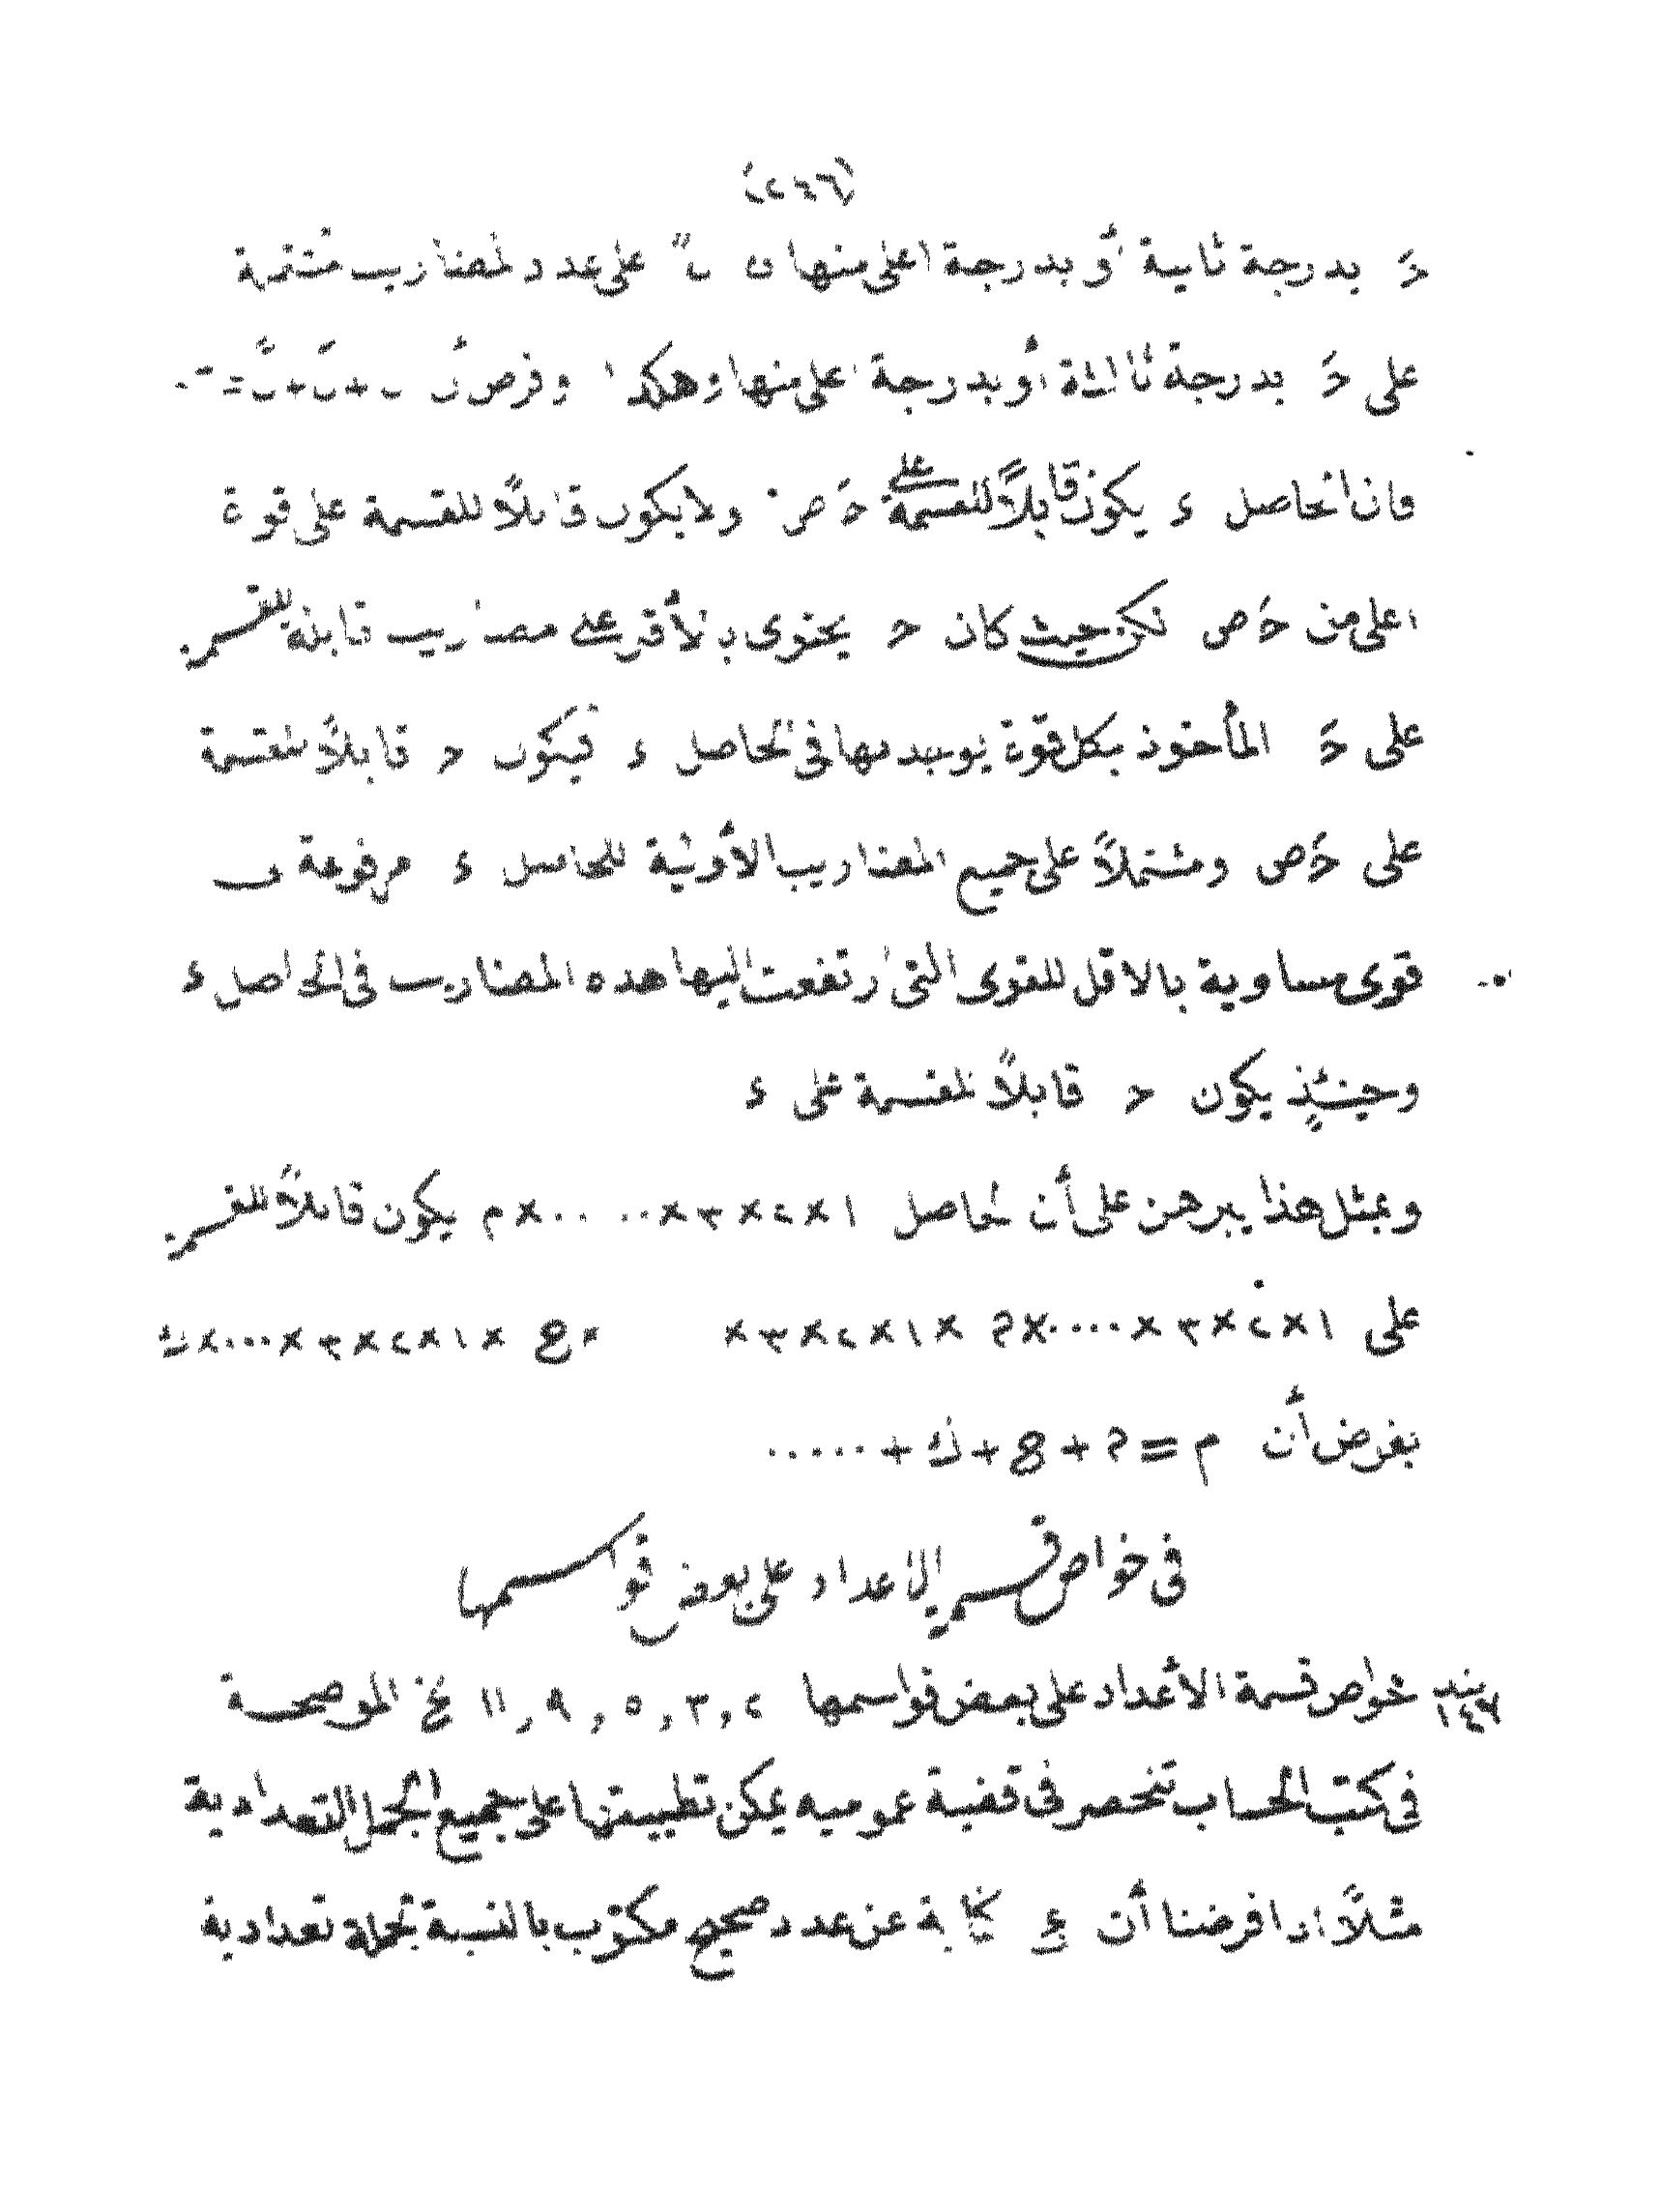 (٢٤٦)
حَ بدرجة ثانية أو بدرجة اعلى منها و ں ً على عدد المضاريب مشتملة
على حَ بدرجة ثالثة أو بدرجة اعلى منها وهكذا وفرض أن ں + ںَ + ںً =
فان الحاصل ء يكون قابلاً للقسمة على حَ ص ولا يكون قابلاً للقسمة على قوة
اعلى من حَ ص لكن حيث كان ح يحتوى بالأقل على مضاريب قابلة للقسمة
على حَ المأخوذ بكل قوة يوجد بها فى الحاصل ء فيكون ح قابلاً للقسمة
على حَ ص ومشتملاً على جميع المضاريب الأولية للحاصل ء مرفوعة الى
قوى مساوية بالاقل للقوى التى ارتفعت اليها هذه المضاريب فى الحاصل ء
وحينئذٍ يكون ح قابلاً للقسمة على ء
وبمثل هذا يبرهن على أن حاصل ١×٢×٣×....×م يكون قابلاً للقسمة
على ١×٢×٣×....×م × ١×٢×٣× ×ع × ١×٢×٣×....×ك
بفرض أن م = م + ع + ك + .....
فى خواص قسمة الاعداد على بعض قواسمها
بند ١٤٧ خواص قسمة الأعداد على بعض قواسمها ٢ , ٣ , ٥ , ٩ , ١١ الخ الموضحة
فى كتب الحساب تنحصر فى قضية عموميه يمكن تطبيقها على جميع الجمل التعدادية
مثلاً اذا فرضنا أن ع كناية عن عدد صحيح مكتوب بالنسبة لجملة تعدادية